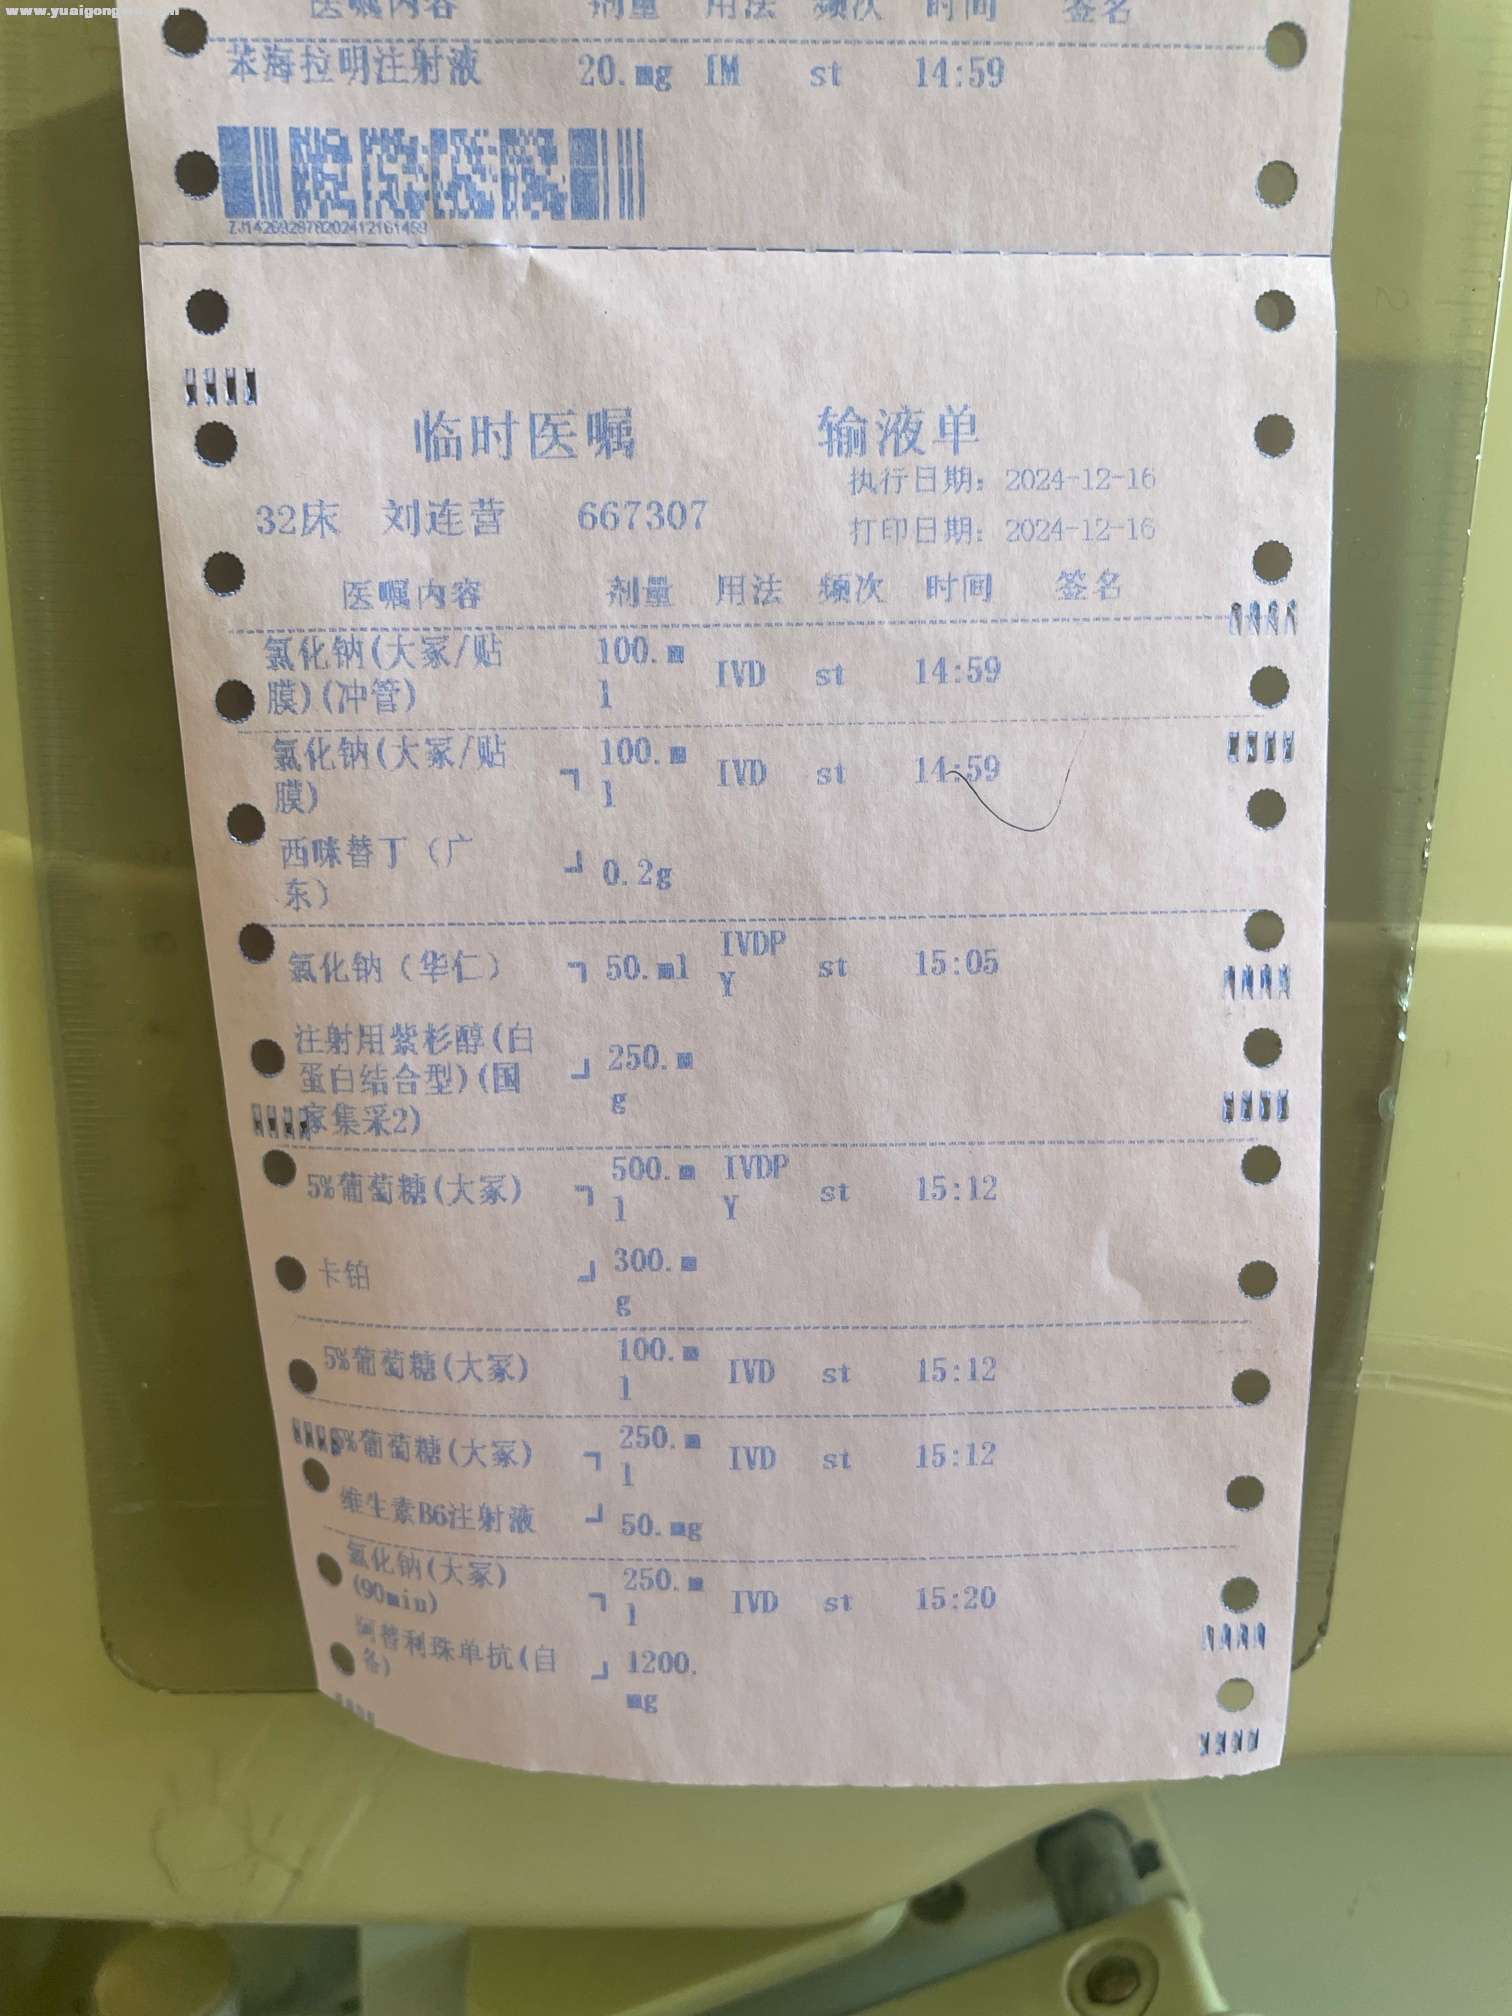 医嘱内容 剂量 用法 频次 时间 签名
苯海拉明注射液 20.mg IM st 14:59
ZJ142692878202412161459
临时医嘱 输液单
执行日期: 2024-12-16
32床 刘连营 667307
打印日期: 2024-12-16
医嘱内容 剂量 用法 频次 时间 签名
氯化钠(大冢/贴 100.m IVD st 14:59
膜)(冲管) l
氯化钠(大冢/贴 ┐ 100.m IVD st 14:59
膜) l
西咪替丁（广 ┘ 0.2g
东）
氯化钠（华仁） ┐ 50.ml IVDP st 15:05
Y
注射用紫杉醇(白 ┘ 250.m
蛋白结合型)(国 g
家集采2)
5%葡萄糖(大冢) ┐ 500.m IVDP st 15:12
l Y
卡铂 ┘ 300.m
g
5%葡萄糖(大冢) 100.m IVD st 15:12
l
5%葡萄糖(大冢) ┐ 250.m IVD st 15:12
l
维生素B6注射液 ┘ 50.mg
氯化钠(大冢) ┐ 250.m IVD st 15:20
(90min) l
阿替利珠单抗(自 ┘ 1200.
备) mg